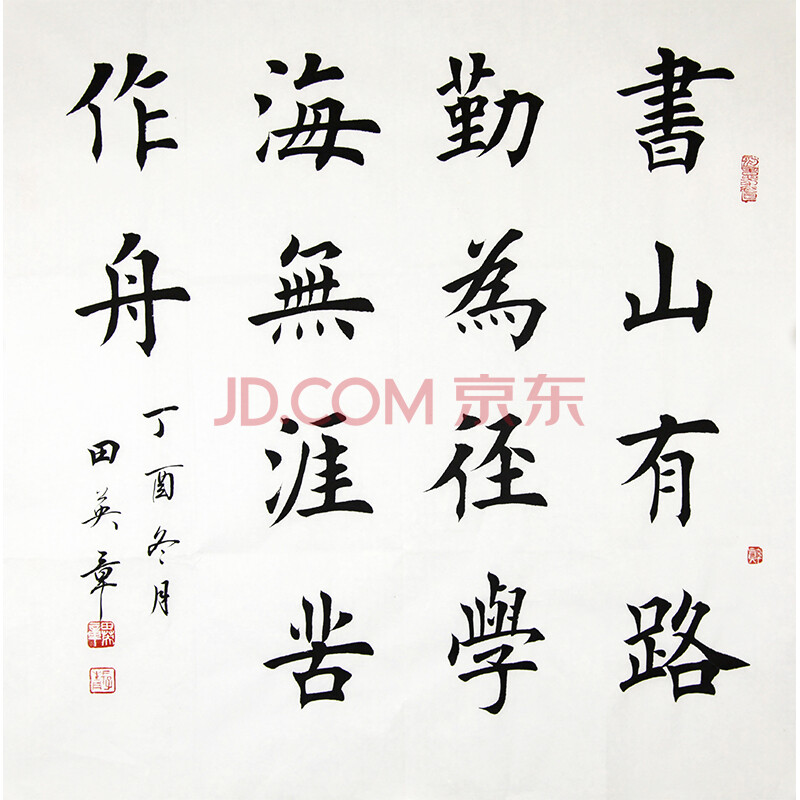 書山有路
勤為径學
海無涯苦
作舟
丁酉冬月
田英章
JD.COM 京东